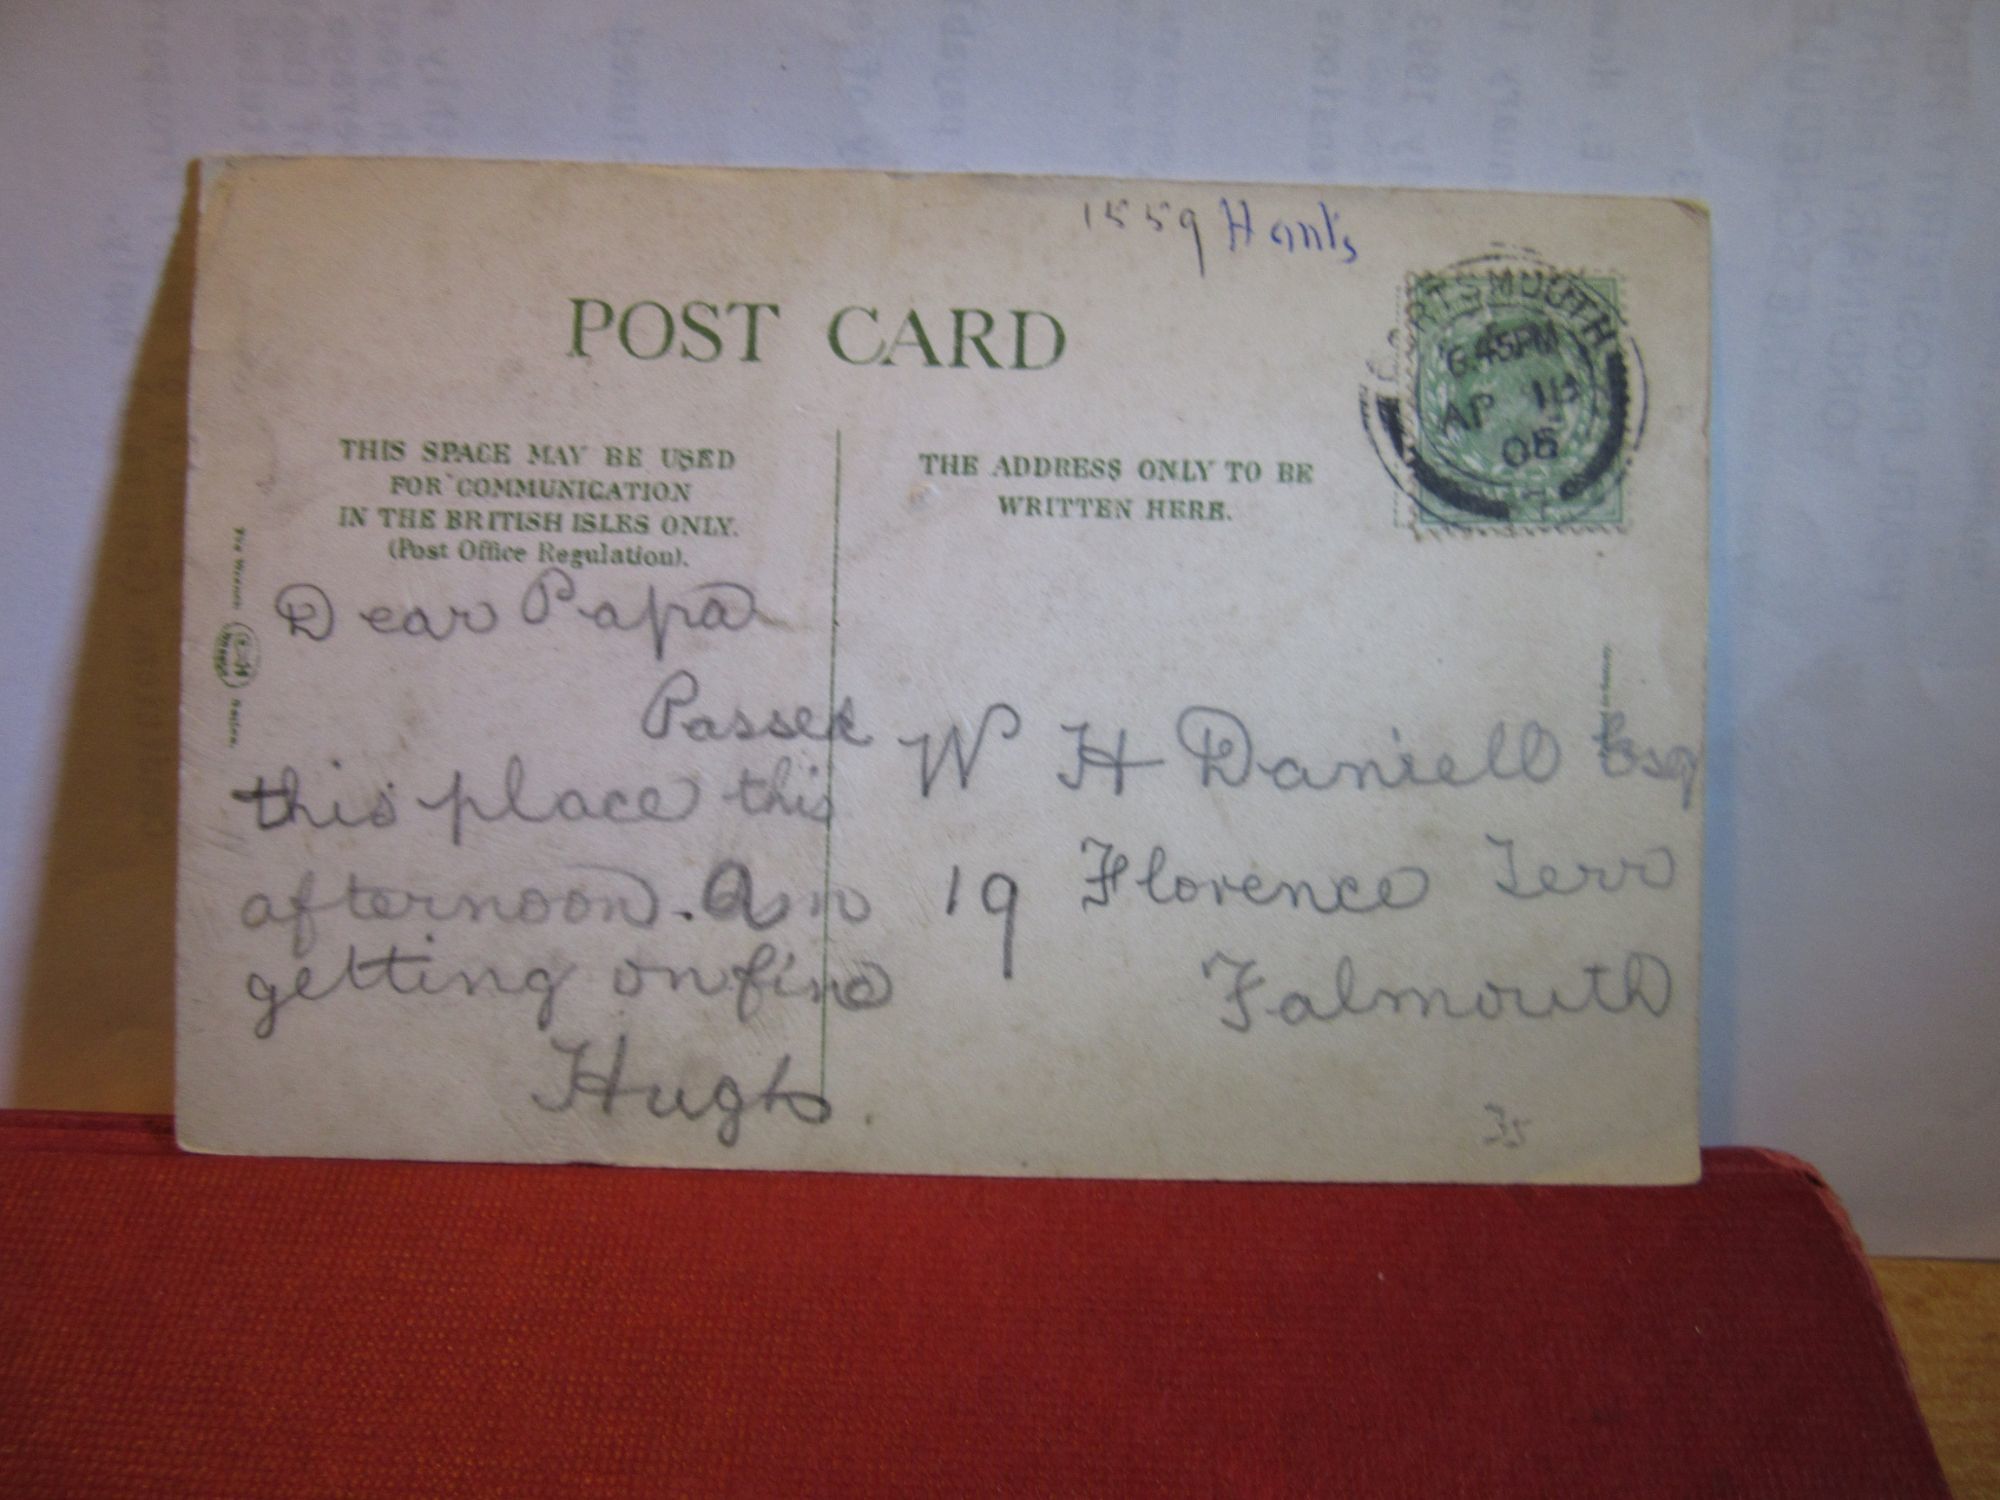 1559 Hants
POST CARD
PORTSMOUTH
6.45PM
AP 11
THIS SPACE MAY BE USED
FOR COMMUNICATION
IN THE BRITISH ISLES ONLY.
(Post Office Regulation).
THE ADDRESS ONLY TO BE
WRITTEN HERE.
The Wrench Series.
Dear Papa
Passed
this place this
afternoon. Am
getting on fine
Hugh
W H Daniell Esq
19 Florence Terr
Falmouth
35